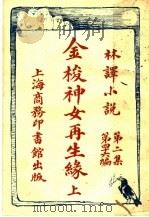 林譯小說
第二集
第四十六編
金梭神女再生緣 上
上海商務印書館出版